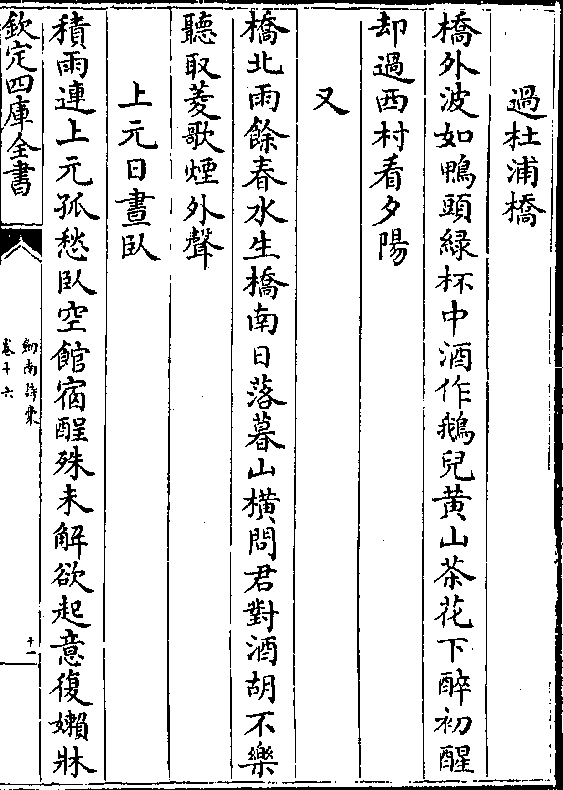 過杜浦橋
橋外波如鴨頭緑杯中酒作鵝兒黄山茶花下醉初醒
却過西村看夕陽
又
橋北雨餘春水生橋南日落暮山横問君對酒胡不樂
聽取菱歌煙外聲
上元日晝臥
積雨連上元孤愁臥空館宿酲殊未解欲起意復嬾牀
欽定四庫全書
劒南詩稾
卷十六
十一